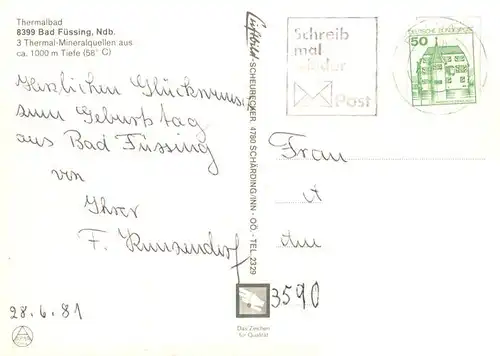 Thermalbad
8399 Bad Füssing, Ndb.
3 Thermal-Mineralquellen aus
ca. 1000 m Tiefe (56° C)
Herzlichen Glückwunsch
zum Geburtstag
aus Bad Füssing
von
Ihrer
F. Kunzendorf
28.6.81
Luftbild-SCHEUBECKER 4780 SCHÄRDING/INN - OÖ. - TEL. 2329
Schreib
mal
wieder
Post
50
DEUTSCHE BUNDESPOST
Frau
A
Am
3590
Das Zeichen
für Qualität